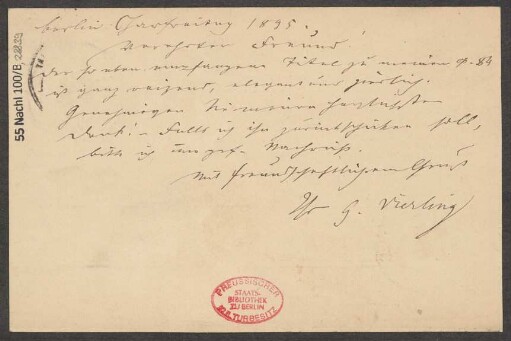 Berlin Charfreitag 1895.
Verehrter Freund!
Der so eben empfangene Titel zu meinem Op. 84
ist ganz reizend, elegant und zierlich.
Genehmigen Sie meinen herzlichsten
Dank! – Falls ich ihn zurückschicken soll,
bitte ich um gef. Nachricht.
Mit freundschaftlichem Gruß
Ihr G. Vierling
55 Nachl 100/B,
PREUSSISCHER
STAATS-
BIBLIOTHEK
ZU BERLIN
KULTURBESITZ